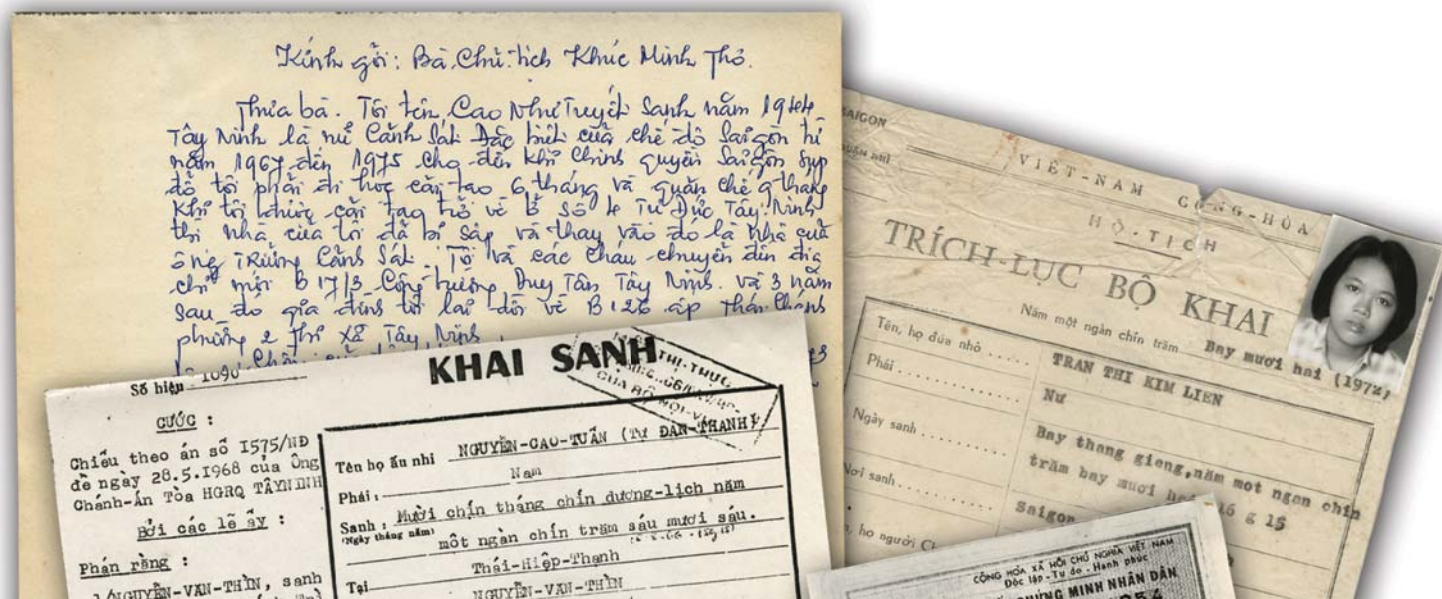 Kính gởi: Bà Chủ-tịch Khúc Minh Thơ.
Thưa bà. Tôi tên Cao Như Tuyết Sanh năm 1944
Tây Ninh là nữ Cảnh Sát Đặc biệt của chế độ Saigòn từ
năm 1967 đến 1975 cho đến khi Chính quyền Saigòn sụp
đổ tôi phải đi học cải tạo 6 tháng và quản chế 9 tháng
Khi tôi từ cải tạo trở về B số 4 Tự Đức Tây Ninh
thì nhà của tôi đã bị sập và thay vào đó là nhà của
ông Trưởng Cảnh Sát. Tôi và các cháu chuyển đến địa
chỉ mới B17/3 Công trường Duy Tân Tây Ninh. và 3 năm
sau đó gia đình tôi lại dời về B126 ấp Thân Chánh
phường 2 Thị Xã Tây Ninh
Số hiệu 1090
KHAI SANH
THỊ-THỰC
CỦA BỘ NỘI-VỤ
CƯỚC :
Chiếu theo án số 1575/NĐ
đề ngày 28.5.1968 của Ông
Chánh-Án Tòa HGRQ TÂYNINH
Bởi các lẽ ấy :
Phán rằng :
NGUYỄN-VĂN-THÌN, sanh
Tên họ ấu nhi NGUYỄN-CAO-TUẤN (Tự DÂN-THANH)
Phái : Nam
Sanh : Mười chín tháng chín dương-lịch năm
(Ngày tháng năm) một ngàn chín trăm sáu mươi sáu.
Tại Thái-Hiệp-Thạnh
NGUYỄN-VĂN-THÌN
SAIGON
VIỆT-NAM CỘNG-HÒA
HỘ-TỊCH
TRÍCH-LỤC BỘ KHAI
Năm một ngàn chín trăm Bay mươi hai (1972)
Tên, họ đứa nhỏ ..... TRAN THI KIM LIEN
Phái ............ Nư
Ngày sanh ........ Bay thang gieng,năm mot ngan chín
trăm bay mươi hai 16 g 15
Nơi sanh ....... Saigon
, họ người
CỘNG HÒA XÃ HỘI CHỦ NGHĨA VIỆT NAM
Độc lập - Tự do - Hạnh phúc
CHỨNG MINH NHÂN DÂN